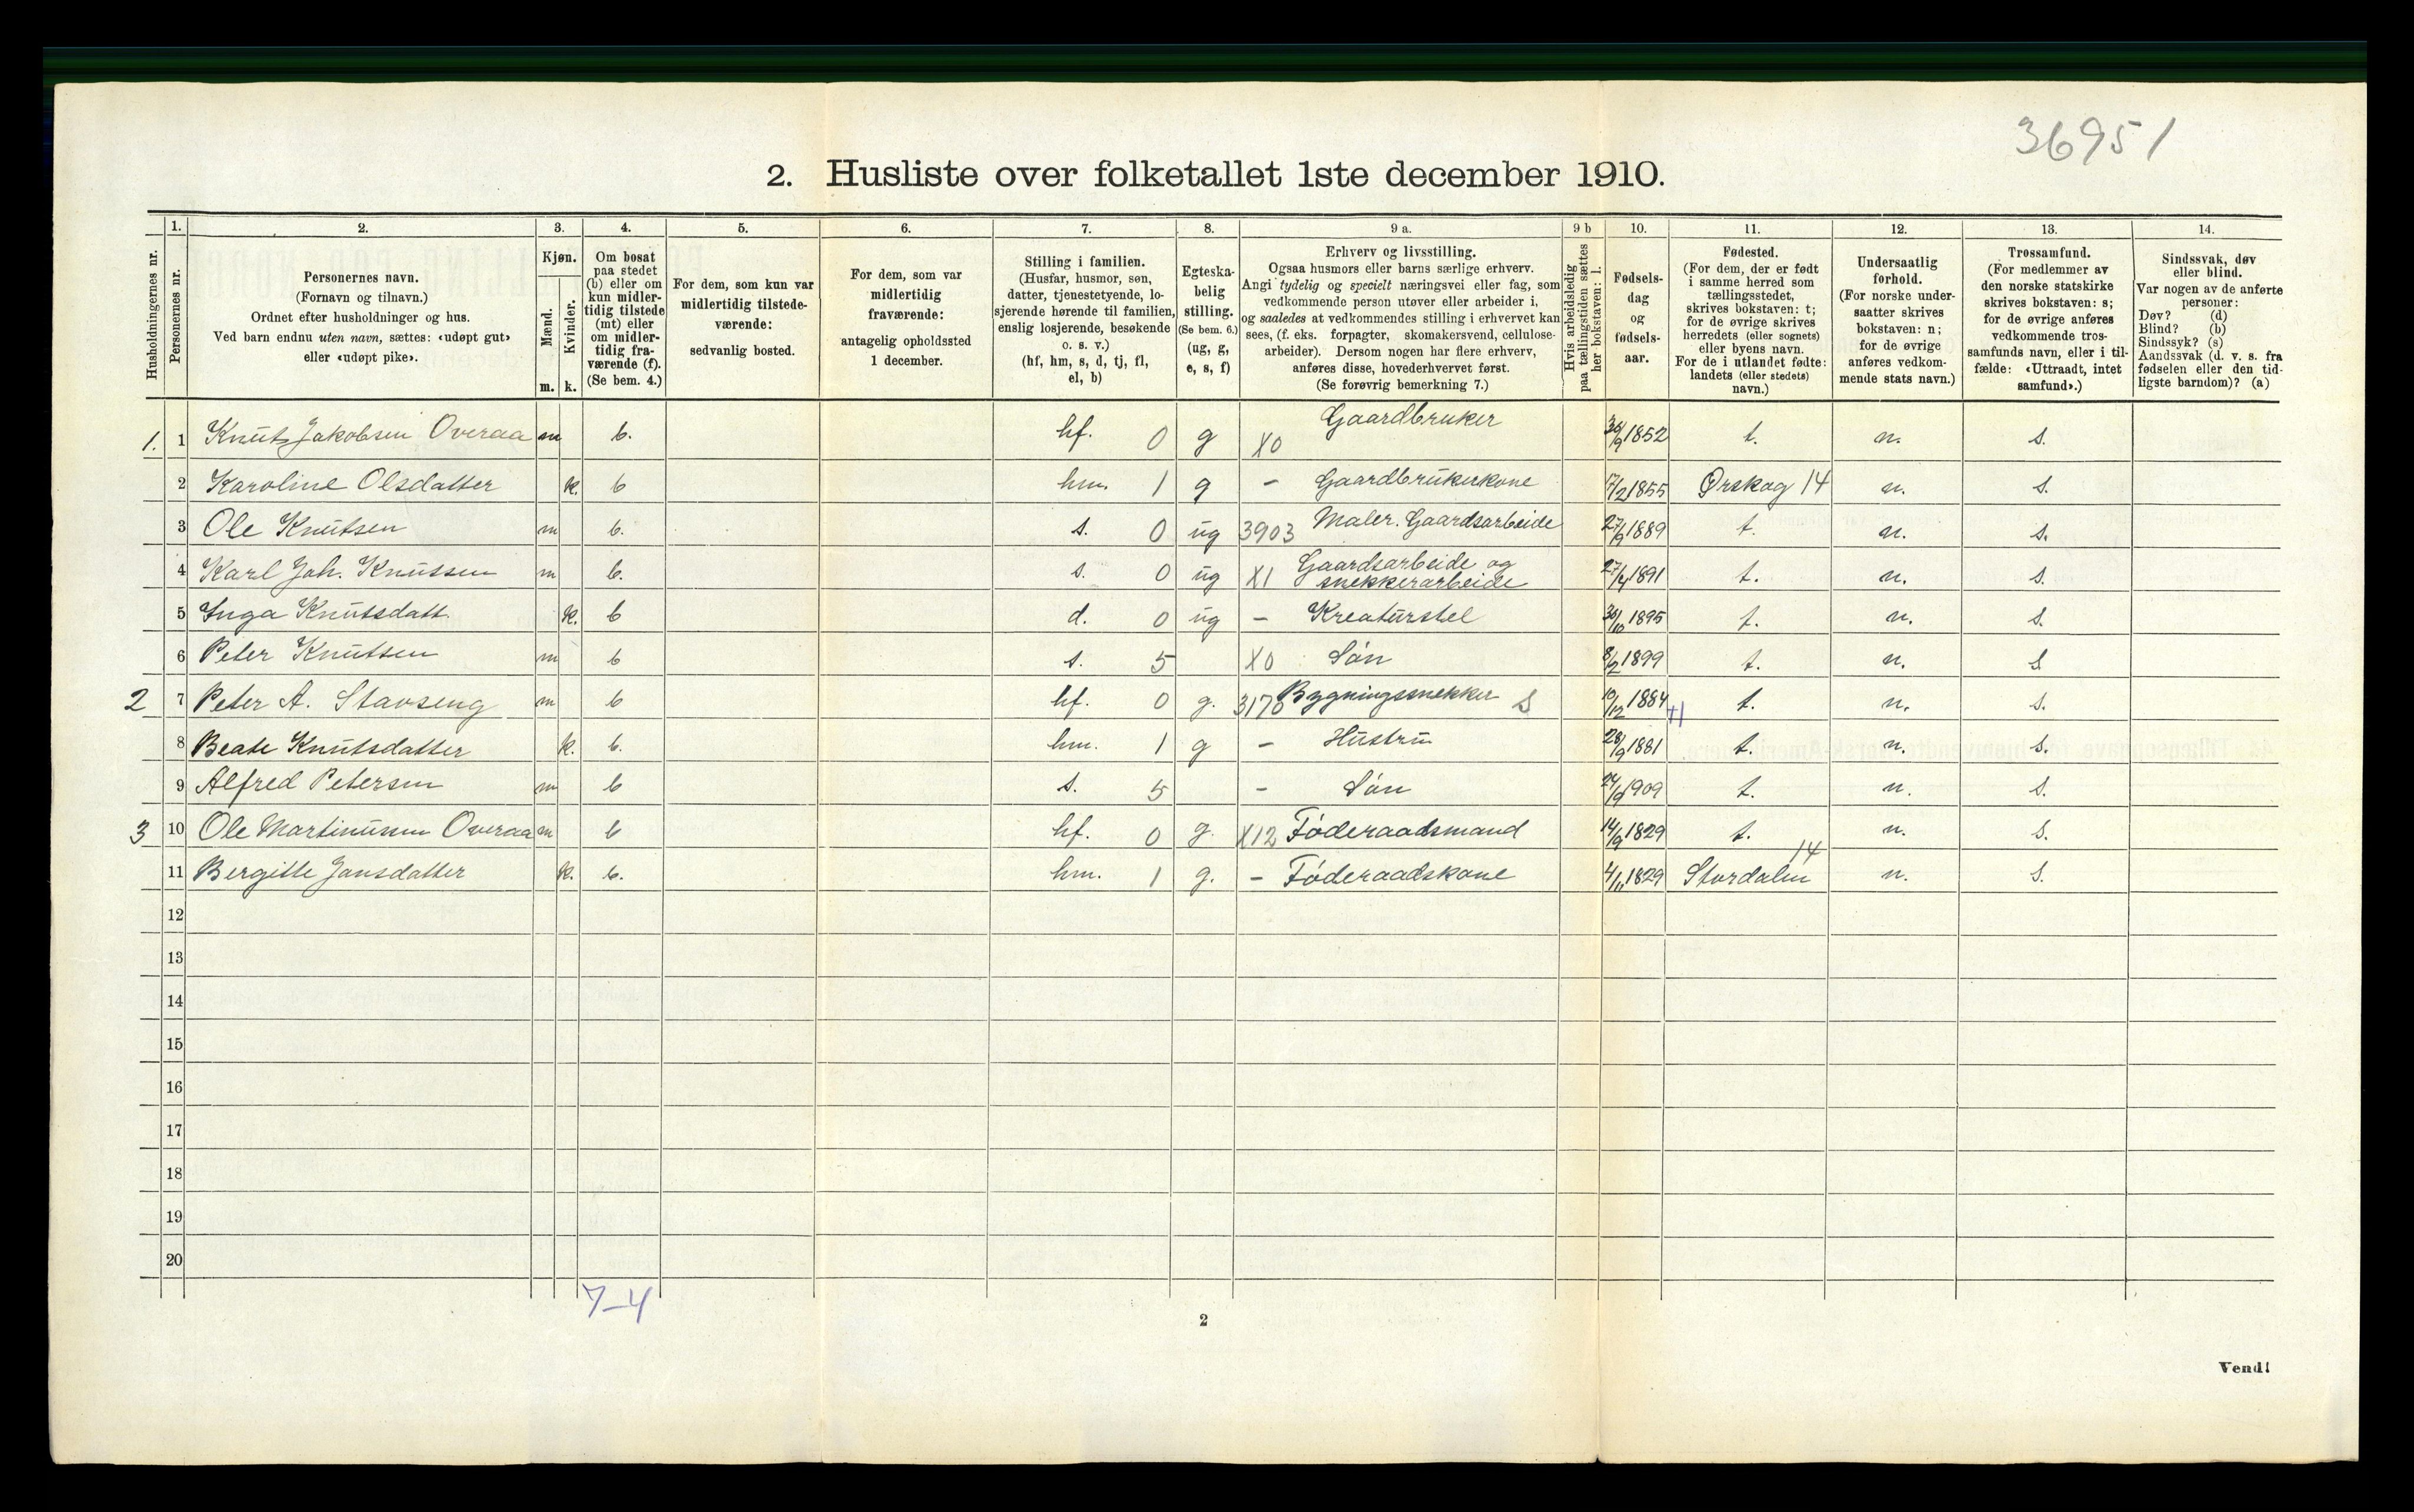 36951
2. Husliste over folketallet 1ste december 1910.
Husholdningernes nr.
1.
Personernes nr.
2.
Personernes navn.
(Fornavn og tilnavn.)
Ordnet efter husholdninger og hus.
Ved barn endnu uten navn, sættes: «udøpt gut»
eller «udøpt pike».
3.
Kjøn.
Mænd. Kvinder.
m. k.
4.
Om bosat
paa stedet
(b) eller om
kun midler-
tidig tilstede
(mt) eller
om midler-
tidig fra-
værende (f).
(Se bem. 4.)
5.
For dem, som kun var
midlertidig tilstede-
værende:
sedvanlig bosted.
6.
For dem, som var
midlertidig
fraværende:
antagelig opholdssted
1 december.
7.
Stilling i familien.
(Husfar, husmor, søn,
datter, tjenestetyende, lo-
sjerende hørende til familien,
enslig losjerende, besøkende
o. s. v.)
(hf, hm, s, d, tj, fl,
el, b)
8.
Egteska-
belig
stilling.
(Se bem. 6.)
(ug, g,
e, s, f)
9 a.
Erhverv og livsstilling.
Ogsaa husmors eller barns særlige erhverv.
Angi tydelig og specielt næringsvei eller fag, som
vedkommende person utøver eller arbeider i,
og saaledes at vedkommendes stilling i erhvervet kan
sees, (f. eks. forpagter, skomakersvend, cellulose-
arbeider). Dersom nogen har flere erhverv,
anføres disse, hovederhvervet først.
(Se forøvrig bemerkning 7.)
9 b
Hvis arbeidsledig
paa tællingstiden sættes
her bokstaven: l.
10.
Fødsels-
dag
og
fødsels-
aar.
11.
Fødested.
(For dem, der er født
i samme herred som
tællingsstedet,
skrives bokstaven: t;
for de øvrige skrives
herredets (eller sognets)
eller byens navn.
For de i utlandet fødte:
landets (eller stedets)
navn.)
12.
Undersaatlig
forhold.
(For norske under-
saatter skrives
bokstaven: n;
for de øvrige
anføres vedkom-
mende stats navn.)
13.
Trossamfund.
(For medlemmer av
den norske statskirke
skrives bokstaven: s;
for de øvrige anføres
vedkommende tros-
samfunds navn, eller i til-
fælde: «Uttraadt, intet
samfund».)
14.
Sindssvak, døv
eller blind.
Var nogen av de anførte
personer:
Døv? (d)
Blind? (b)
Sindssyk? (s)
Aandssvak (d. v. s. fra
fødselen eller den tid-
ligste barndom)? (a)
1. 1 Knut Jakobsen Overaa m b. hf. 0 g X0 Gaardbruker 30/9 1852 t. n. s.
2 Karoline Olsdatter k. b hm. 1 g - Gaardbrukerkone 17/2 1855 Ørskog 14 n. s.
3 Ole Knutsen m b. s. 0 ug 3903 Maler. Gaardsarbeide 27/9 1889 t. n. s.
4 Karl Joh. Knutsen m b. s. 0 ug X1 Gaardsarbeide og snekkerarbeide 27/4 1891 t. n. s.
5 Inga Knutsdatt. k. b d. 0 ug - Kreaturstel 30/10 1895 t. n. s.
6 Peter Knutsen m b s. 5 X0 Søn 8/2 1899 t. n. s
2 7 Peter A. Stavseng m b hf. 0 g. 3178 Bygningssnekker S 10/12 1884 t. n. s.
8 Beate Knutsdatter k. b. hm. 1 g - Hustru 28/9 1881 t. n. s.
9 Alfred Petersen m b s. 5 - Søn 1909 t. n. s.
3 10 Ole Martinussen Overaa m b hf. 0 g. X12 Føderaadsmand 14/9 1829 t. n. s.
11 Bergitte Jonsdatter k. b. hm. 1 g. - Føderaadskone 4/11 1829 Stordalen 14 n. s.
12
13
14
15
16
17
18
19
20
7-4
2
Vend!